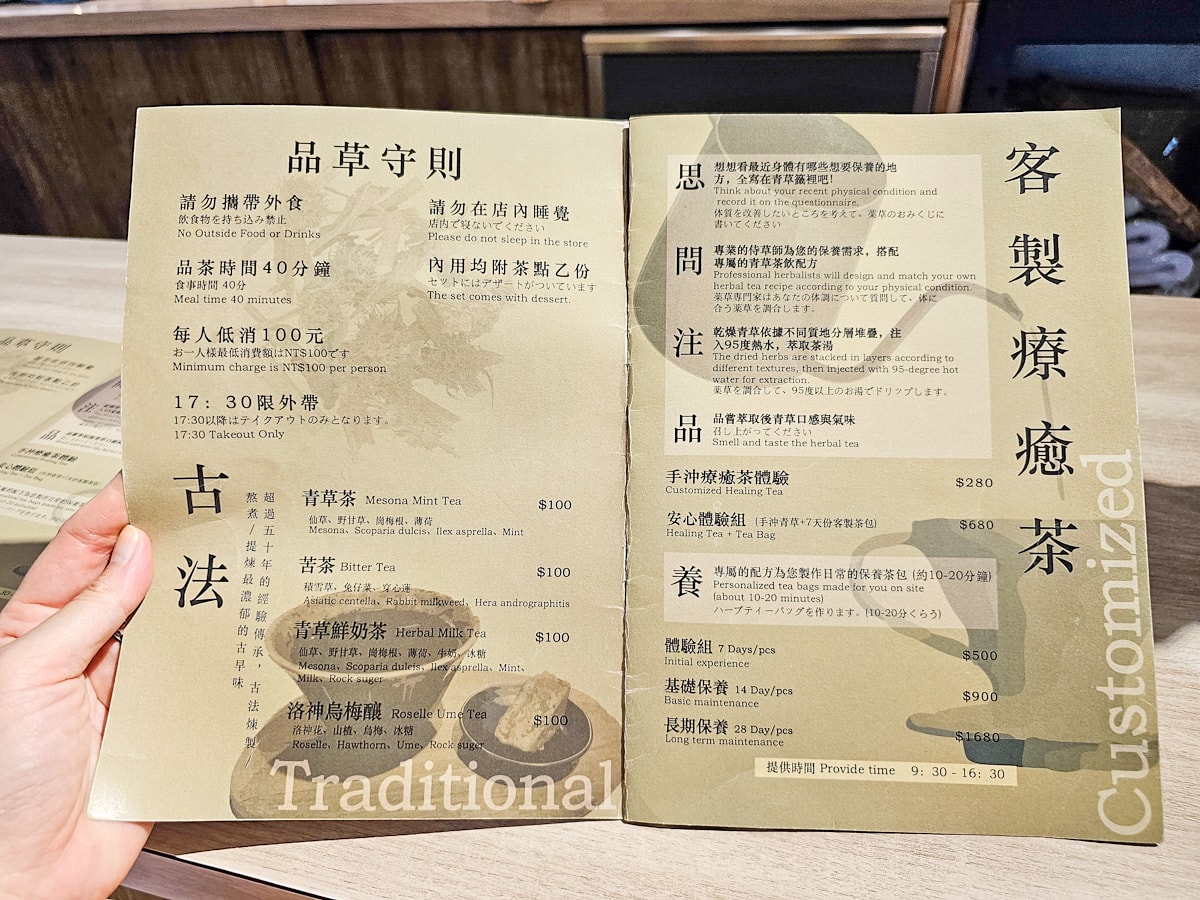 品草守則
請勿攜帶外食
飲食物を持ち込み禁止
No Outside Food or Drinks
請勿在店內睡覺
店内で寝ないでください
Please do not sleep in the store
品茶時間40分鐘
食事時間 40分
Meal time 40 minutes
內用均附茶點乙份
セットにはデザートがついています
The set comes with dessert.
每人低消100元
お一人様最低消費額はNT$100です
Minimum charge is NT$100 per person
17：30限外帶
17:30以降はテイクアウトのみとなります。
17:30 Takeout Only
古法
超過五十年的經驗傳承，古法煉製/
熬煮/提煉最濃郁的古早味
青草茶 Mesona Mint Tea $100
仙草、野甘草、崗梅根、薄荷
Mesona, Scoparia dulcis, Ilex asprella, Mint
苦茶 Bitter Tea $100
積雪草、兔仔菜、穿心蓮
Asiatic centella, Rabbit milkweed, Hera andrographitis
青草鮮奶茶 Herbal Milk Tea $100
仙草、野甘草、崗梅根、薄荷、牛奶、冰糖
Mesona, Scoparia dulcis, Ilex asprella, Mint,
Milk, Rock suger
洛神烏梅釀 Roselle Ume Tea $100
洛神花、山楂、烏梅、冰糖
Roselle, Hawthorn, Ume, Rock suger
Traditional
客製療癒茶
Customized
思
想想看最近身體有哪些想要保養的地
方，全寫在青草籤裡吧！
Think about your recent physical condition and
record it on the questionnaire.
体質を改善したいところを考えて、薬草のおみくじに
書いてください
問
專業的侍草師為您的保養需求，搭配
專屬的青草茶飲配方
Professional herbalists will design and match your own
herbal tea recipe according to your physical condition.
薬草専門家はあなたの体調について質問して、体に
合う薬草を調合します。
注
乾燥青草依據不同質地分層堆疊，注
入95度熱水，萃取茶湯
The dried herbs are stacked in layers according to
different textures, then injected with 95-degree hot
water for extraction.
薬草を調合して、95度以上のお湯でドリップします。
品
品嘗萃取後青草口感與氣味
召し上がってください
Smell and taste the herbal tea
手沖療癒茶體驗 $280
Customized Healing Tea
安心體驗組 (手沖青草+7天份客製茶包) $680
Healing Tea + Tea Bag
養
專屬的配方為您製作日常的保養茶包 (約10-20分鐘)
Personalized tea bags made for you on site
(about 10-20 minutes)
ハーブティーバッグを作ります。(10-20分くらう)
體驗組 7 Days/pcs $500
Initial experience
基礎保養 14 Day/pcs $900
Basic maintenance
長期保養 28 Day/pcs $1680
Long term maintenance
提供時間 Provide time 9：30 - 16：30
品草守則